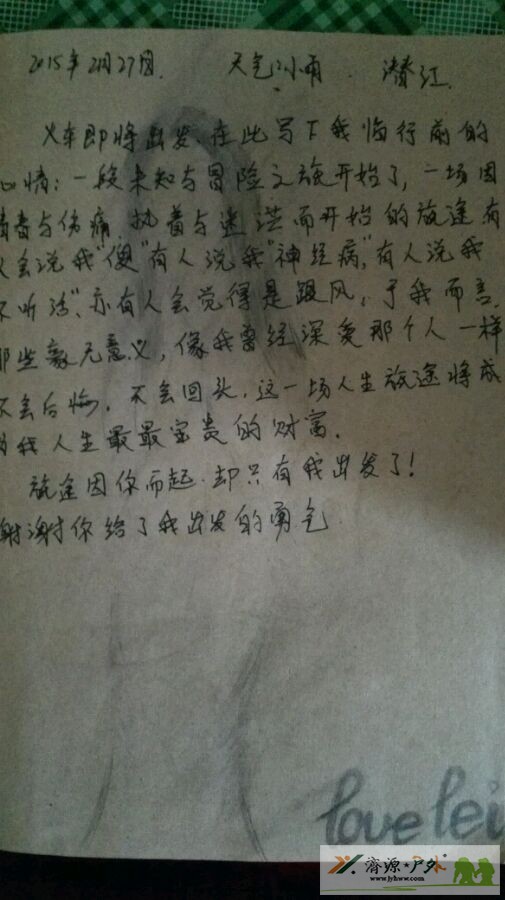 2015年2月27日. 天气:小雨. 潜江.
火车即将出发,在此写下我临行前的
心情:一段未知与冒险之旅开始了,一场因
青春与伤痛,执着与迷茫而开始的旅途.有
人会说我"傻"有人说我"神经病",有人说我
不听话",亦有人会觉得是跟风,于我而言,
那些毫无意义,像我曾经深爱那个人一样
不会后悔,不会回头,这一场人生旅途将成
为我人生最最宝贵的财富.
旅途因你而起.却只有我出发了!
谢谢你给了我出发的勇气.
love lei
济源·户外
www.jyhww.com